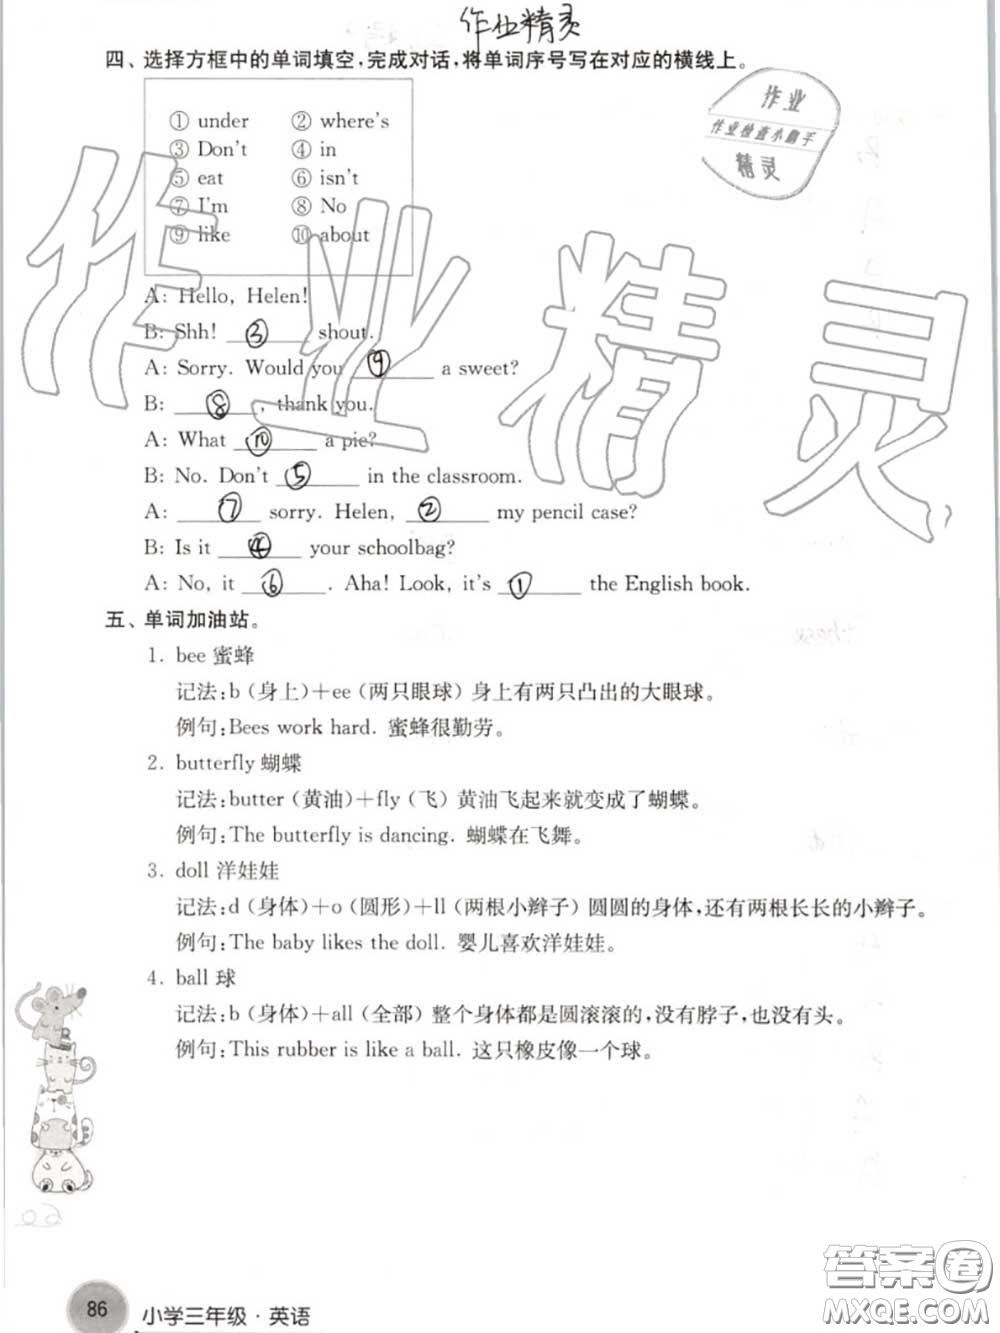 作业精灵
四、选择方框中的单词填空,完成对话,将单词序号写在对应的横线上。
作业
作业检查小助手
精灵
① under ② where's
③ Don't ④ in
⑤ eat ⑥ isn't
⑦ I'm ⑧ No
⑨ like ⑩ about
作业精灵
A: Hello, Helen!
B: Shh! ③ shout.
A: Sorry. Would you ⑨ a sweet?
B: ⑧, thank you.
A: What ⑩ a pie?
B: No. Don't ⑤ in the classroom.
A: ⑦ sorry. Helen, ② my pencil case?
B: Is it ④ your schoolbag?
A: No, it ⑥. Aha! Look, it's ① the English book.
五、单词加油站。
1. bee 蜜蜂
记法:b(身上)+ee(两只眼球)身上有两只凸出的大眼球。
例句:Bees work hard. 蜜蜂很勤劳。
2. butterfly 蝴蝶
记法:butter(黄油)+fly(飞)黄油飞起来就变成了蝴蝶。
例句:The butterfly is dancing. 蝴蝶在飞舞。
3. doll 洋娃娃
记法:d(身体)+o(圆形)+ll(两根小辫子)圆圆的身体,还有两根长长的小辫子。
例句:The baby likes the doll. 婴儿喜欢洋娃娃。
4. ball 球
记法:b(身体)+all(全部)整个身体都是圆滚滚的,没有脖子,也没有头。
例句:This rubber is like a ball. 这只橡皮像一个球。
86
小学三年级·英语
答案圈
MXQE.COM